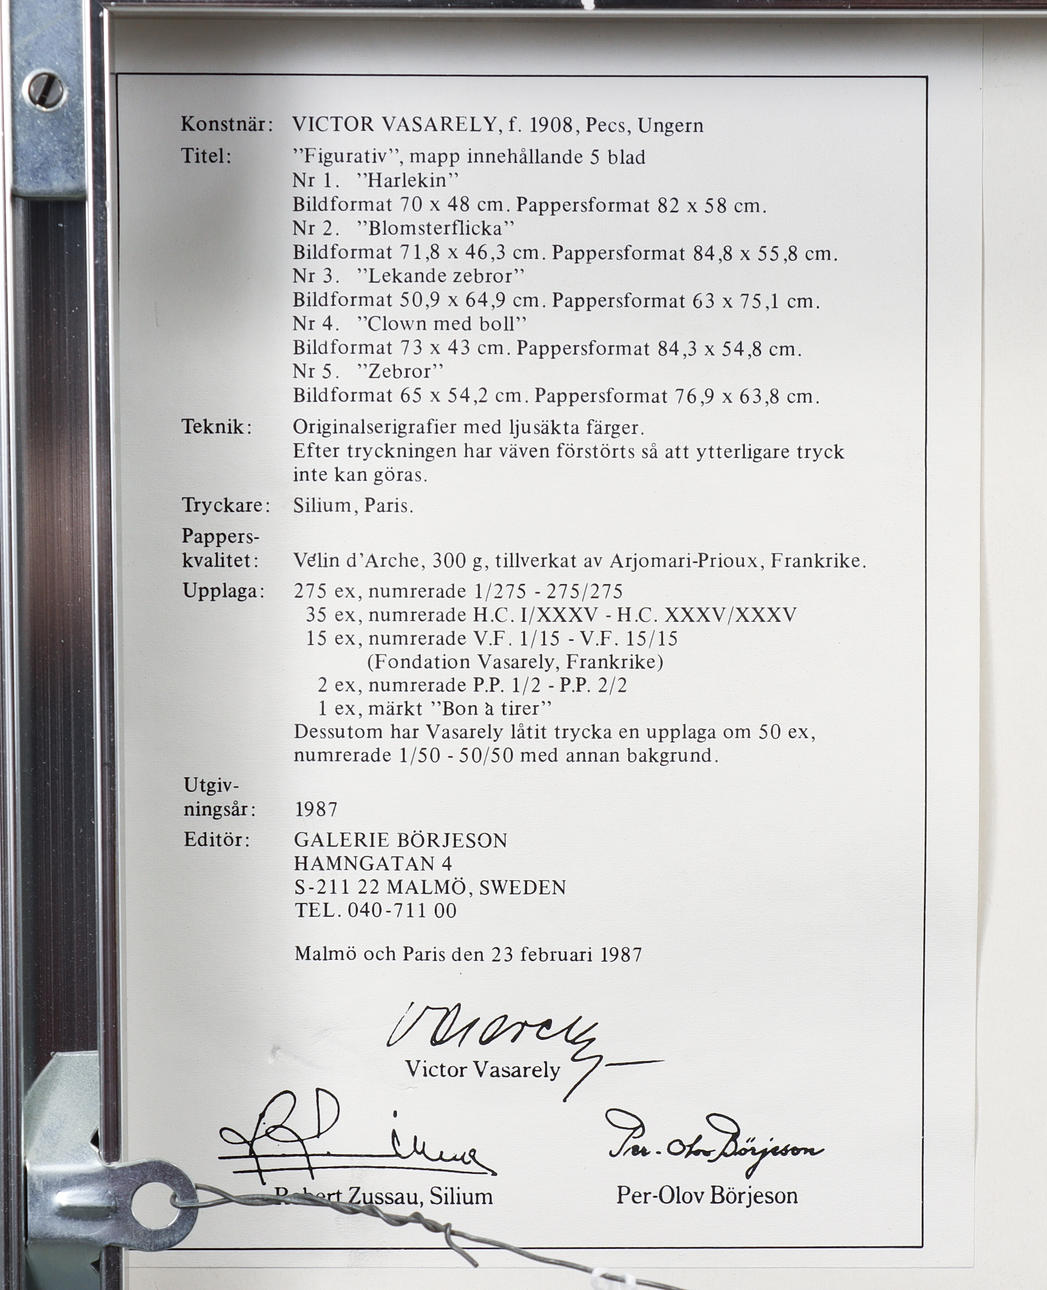 Konstnär: VICTOR VASARELY, f. 1908, Pecs, Ungern
Titel: ”Figurativ”, mapp innehållande 5 blad
Nr 1. ”Harlekin”
Bildformat 70 x 48 cm. Pappersformat 82 x 58 cm.
Nr 2. ”Blomsterflicka”
Bildformat 71,8 x 46,3 cm. Pappersformat 84,8 x 55,8 cm.
Nr 3. ”Lekande zebror”
Bildformat 50,9 x 64,9 cm. Pappersformat 63 x 75,1 cm.
Nr 4. ”Clown med boll”
Bildformat 73 x 43 cm. Pappersformat 84,3 x 54,8 cm.
Nr 5. ”Zebror”
Bildformat 65 x 54,2 cm. Pappersformat 76,9 x 63,8 cm.
Teknik: Originalserigrafier med ljusäkta färger.
Efter tryckningen har väven förstörts så att ytterligare tryck
inte kan göras.
Tryckare: Silium, Paris.
Pappers-
kvalitet: Vélin d’Arche, 300 g, tillverkat av Arjomari-Prioux, Frankrike.
Upplaga: 275 ex, numrerade 1/275 - 275/275
35 ex, numrerade H.C. I/XXXV - H.C. XXXV/XXXV
15 ex, numrerade V.F. 1/15 - V.F. 15/15
(Fondation Vasarely, Frankrike)
2 ex, numrerade P.P. 1/2 - P.P. 2/2
1 ex, märkt ”Bon à tirer”
Dessutom har Vasarely låtit trycka en upplaga om 50 ex,
numrerade 1/50 - 50/50 med annan bakgrund.
Utgiv-
ningsår: 1987
Editör: GALERIE BÖRJESON
HAMNGATAN 4
S-211 22 MALMÖ, SWEDEN
TEL. 040-711 00
Malmö och Paris den 23 februari 1987
Vasarely
Victor Vasarely
Per-Olov Börjeson
Robert Zussau, Silium Per-Olov Börjeson